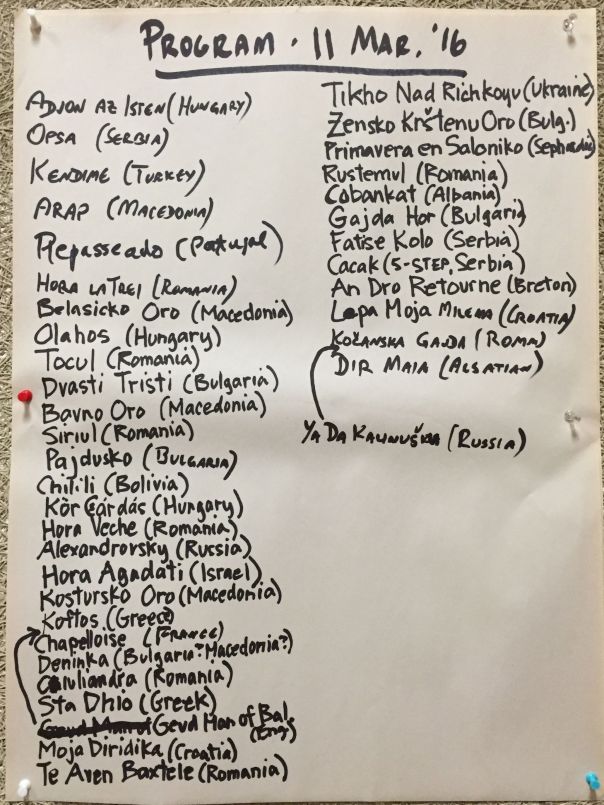 PROGRAM · 11 MAR. '16
ADJON AZ ISTEN (HUNGARY)
OPSA (SERBIA)
KENDIME (TURKEY)
ARAP (MACEDONIA)
Repasseado (Portugal)
HORA LA TREI (ROMANIA)
Belasicko Oro (Macedonia)
Olahos (Hungary)
Tocul (Romania)
Dvasti Tristi (Bulgaria)
Bavno Oro (Macedonia)
Siriul (Romania)
Pajdusko (BULGARIA)
Chitili (Bolivia)
Kör Csárdás (Hungary)
Hora Veche (Romania)
Alexandrovsky (Russia)
Hora Agadati (Israel)
Kostursko Oro (Macedonia)
Koftos (Greece)
Chapelloise (FRANCE)
Deninka (Bulgaria? Macedonia?)
Ciuliandra (Romania)
Sta Dhio (Greek)
Geud Man of Bal
(Eng)
Moja Diridika (Croatia)
Te Aven Baxtele (Romania)
Tikho Nad Richkoyu (Ukraine)
Žensko Krštenu Oro (Bulg.)
Primavera en Saloniko (Sephardic)
Rustemul (Romania)
Cobankat (Albania)
Gajda Hor (Bulgaria)
Fatise Kolo (Serbia)
Cacak (5-STEP, Serbia)
An Dro Retourne (Breton)
Lepa Moja MILENA (CROATIA)
KOŽANSKA GAJDA (ROMA)
DIR MAIA (ALSATIAN)
YA DA KALINUŠKA (RUSSIA)